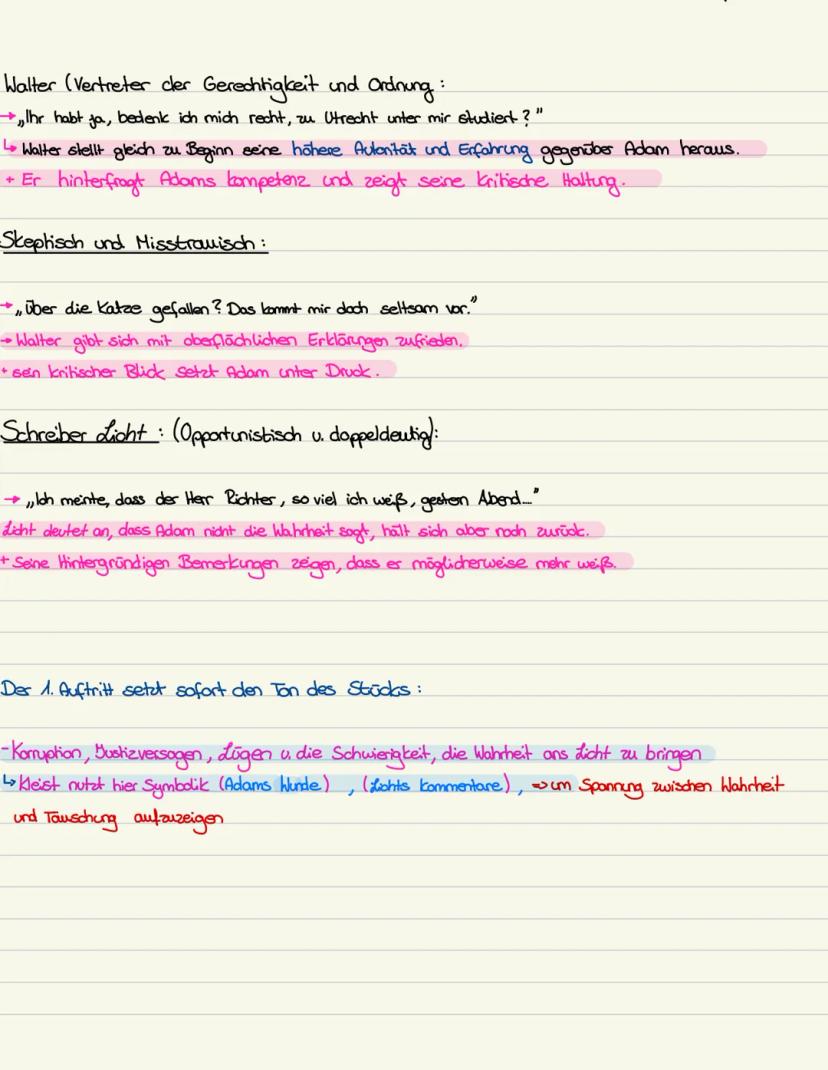 Walter (Vertreter der Gerechtigkeit und Ordnung :
→ „Ihr habt ja, bedenk ich mich recht, zu Utrecht unter mir studiert ? "
↳ Walter stellt gleich zu Beginn seine höhere Autorität und Erfahrung gegenüber Adam heraus.
+ Er hinterfragt Adams Kompetenz und zeigt seine kritische Haltung.
Skeptisch und Misstrauisch :
→ „Über die Katze gefallen? Das kommt mir doch seltsam vor."
→ Walter gibt sich mit oberflächlichen Erklärungen zufrieden.
+ sein kritischer Blick setzt Adam unter Druck.
Schreiber Licht : (Opportunistisch u. doppeldeutig):
→ „Ich meinte, dass der Herr Richter, so viel ich weiß, gestern Abend..."
Licht deutet an, dass Adam nicht die Wahrheit sagt, hält sich aber noch zurück.
+ Seine Hintergründigen Bemerkungen zeigen, dass er möglicherweise mehr weiß.
Der 1. Auftritt setzt sofort den Ton des Stücks :
- Korruption, Justizversagen, Lügen u. die Schwierigkeit, die Wahrheit ans Licht zu bringen
↳ Kleist nutzt hier Symbolik (Adams Wunde) , (Lichts Kommentare) , ⇒ um Spannung zwischen Wahrheit
und Täuschung aufzuzeigen